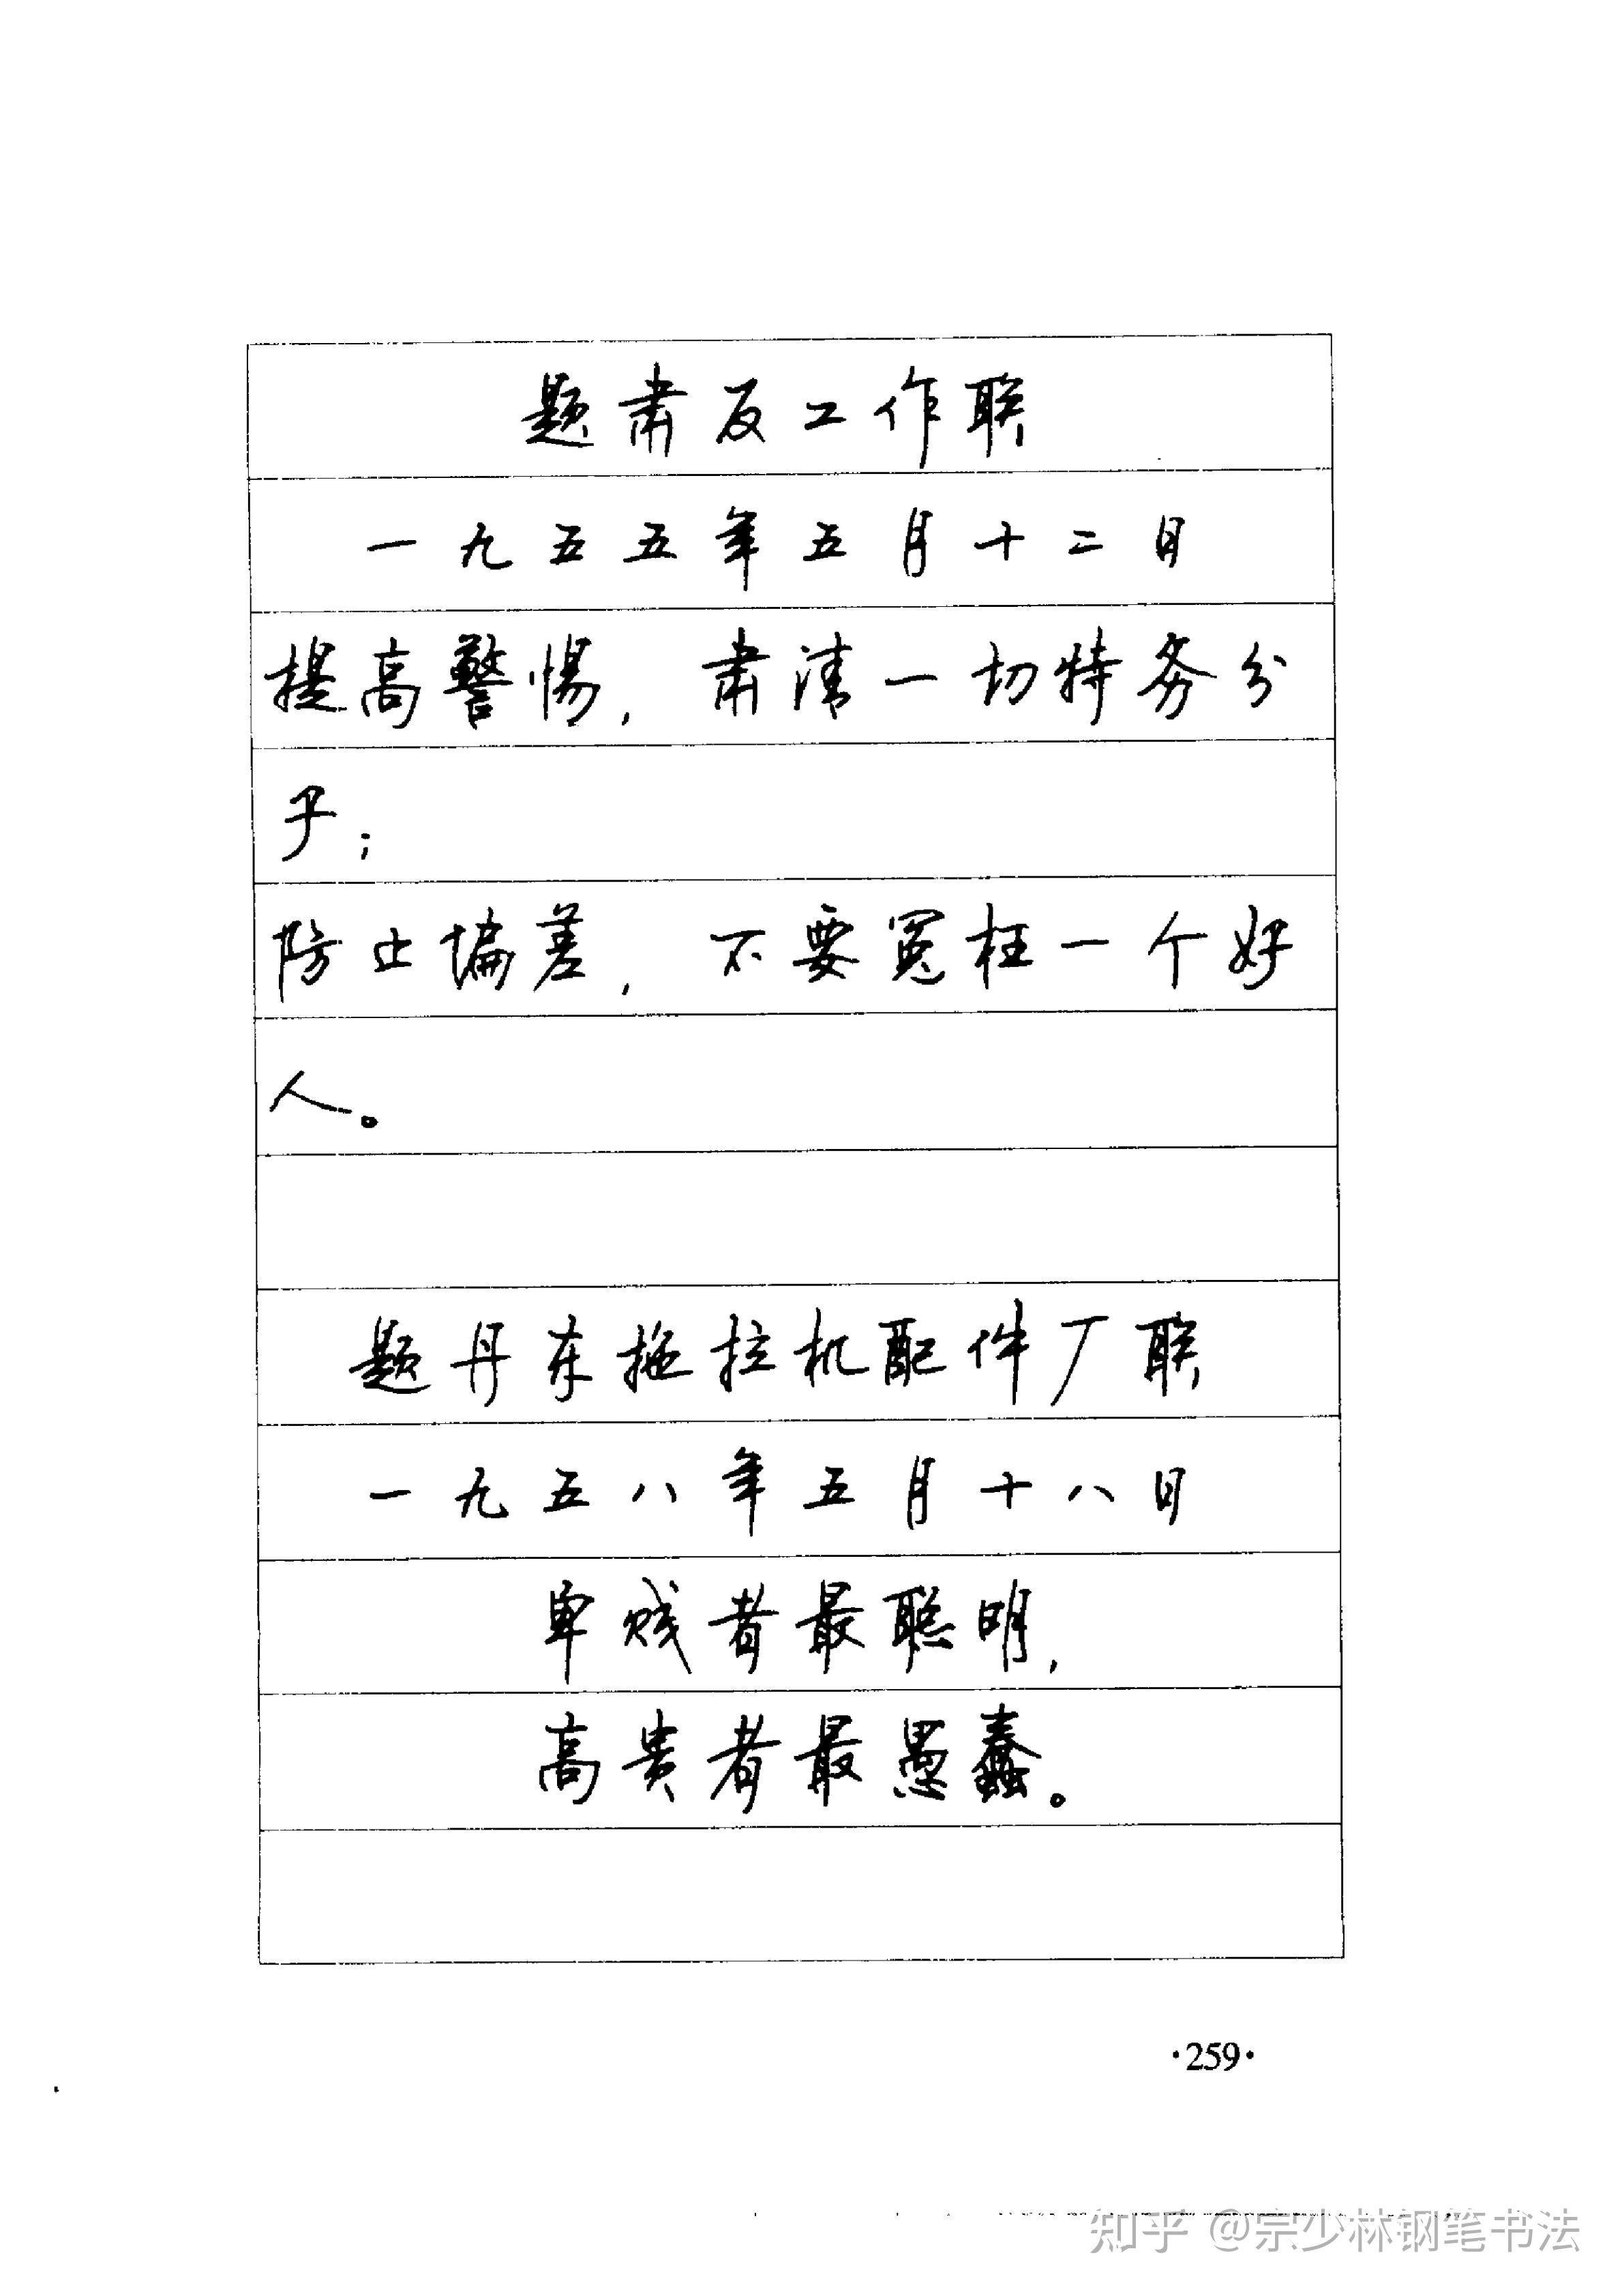 题肃反工作联
一九五五年五月十二日
提高警惕，肃清一切特务分
子；
防止偏差，不要冤枉一个好
人。
题丹东拖拉机配件厂联
一九五八年五月十八日
卑贱者最聪明，
高贵者最愚蠢。
·259·
知乎 @宗少林钢笔书法